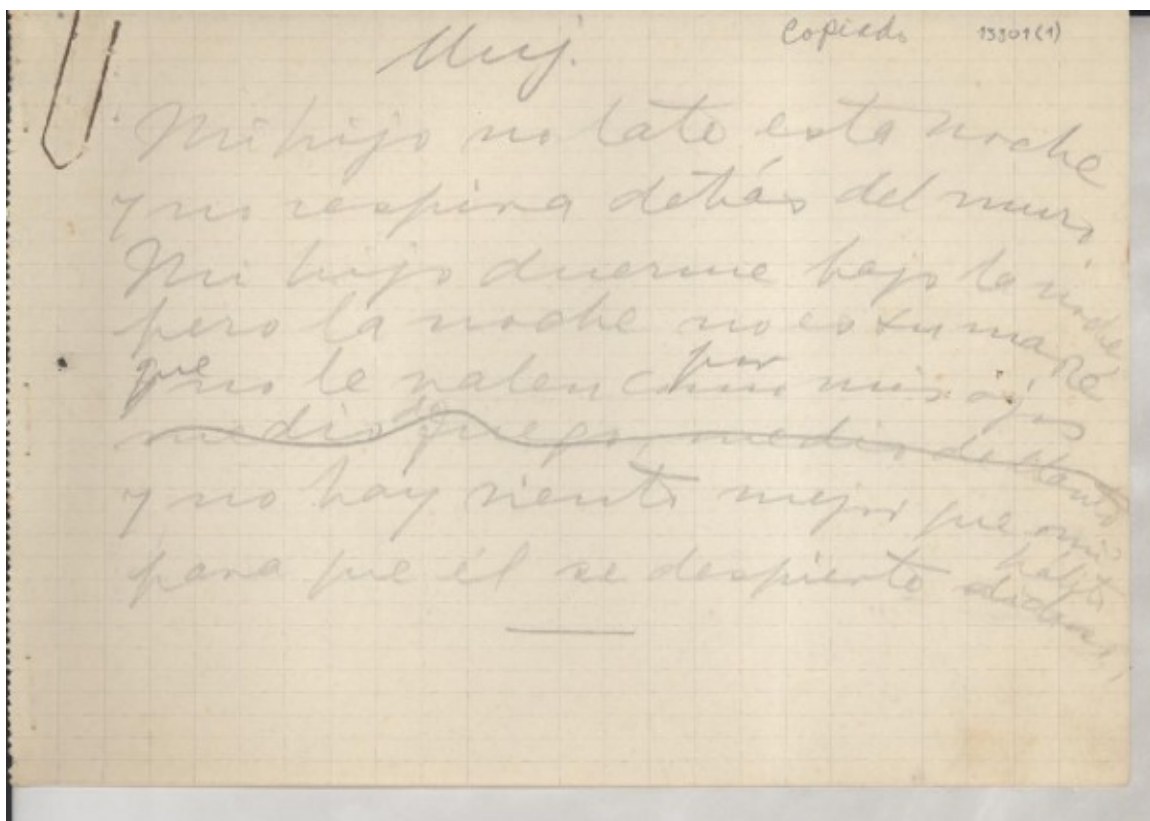 Copiado 13301(1)
Muj.
Mi hijo no late esta noche
y no respira detrás del muro
Mi hijo duerme bajo la noche
pero la noche no es su madre
que no le valen como por mis ojos
medio de fuego, medio de llanto
y no hay viento mejor que mi hálito
para que él se despierte